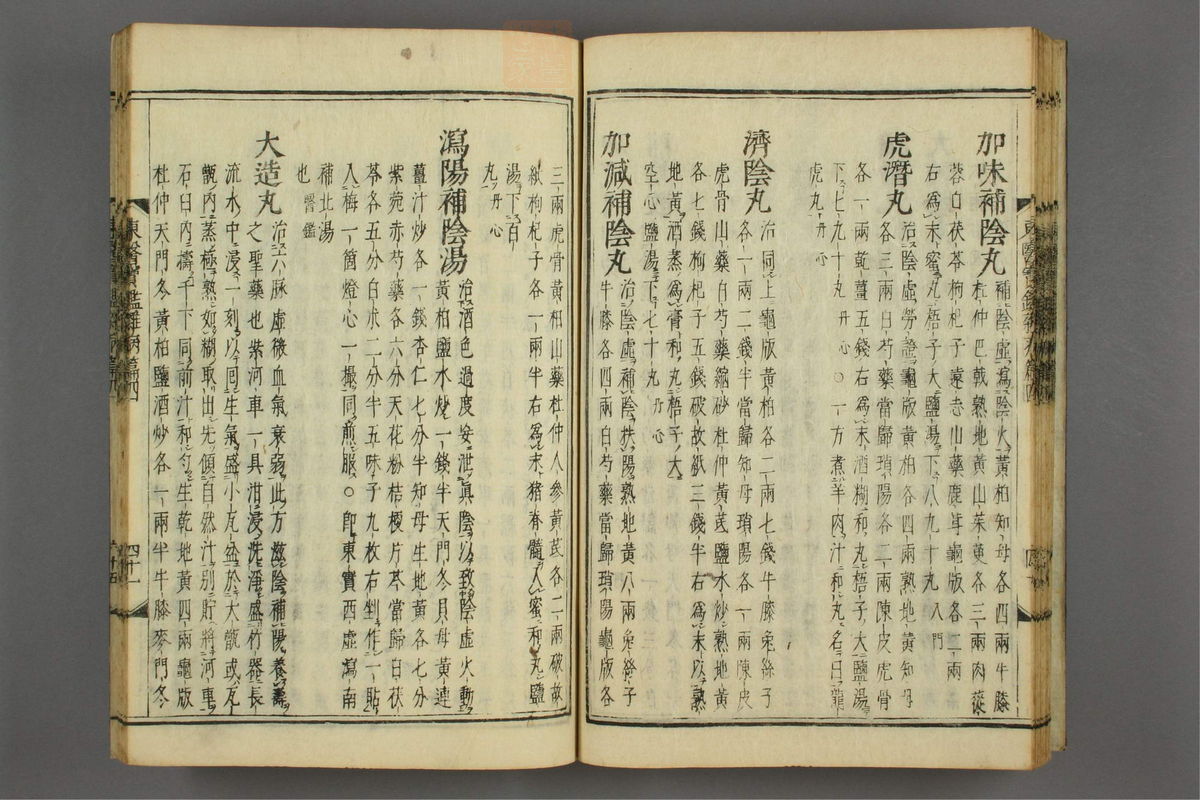 加味補陰丸 補陰虛瀉陰火黃柏知母各四兩牛膝
杜仲巴戟熟地黃山茱萸各三兩肉蓯
蓉白茯苓枸杞子遠志山藥鹿茸龜版各二兩
右爲末蜜丸梧子大鹽湯下八九十丸入門
虎潛丸 治陰虛勞證龜版黃柏各四兩熟地黃知母
各三兩白芍藥當歸瑣陽各二兩陳皮虎骨
各一兩乾薑五錢右爲末酒糊和丸梧子大鹽湯
下七九十丸丹心○一方煮羊肉汁和丸名曰龍
虎丸丹心
濟陰丸 治同上龜版黃柏各二兩七錢牛膝兔絲子
各一兩二錢半當歸知母瑣陽各一兩陳皮
虎骨山藥白芍藥縮砂杜仲黃芪鹽水炒熟地黃
各七錢枸杞子五錢破故紙三錢半右爲末以熟
地黃酒蒸爲膏和丸梧子大
空心鹽湯下七十丸丹心
加減補陰丸 治陰虛補陰扶陽熟地黃八兩兔絲子
牛膝各四兩白芍藥當歸瑣陽龜版各
三兩虎骨黃柏山藥杜仲人參黃芪各二兩破故
紙枸杞子各一兩半右爲末猪脊髓入蜜和丸鹽
湯下百
丸丹心
瀉陽補陰湯 治酒色過度妄泄眞陰以致陰虛火動
黃柏鹽水炒一錢半天門冬貝母黃連
薑汁炒各一錢杏仁七分半知母生地黃各七分
紫菀赤芍藥各六分天花粉桔梗片芩當歸白茯
苓各五分白朮二分半五味子九枚右剉作一貼
入梅一箇燈心一撮同煎服○卽東實西虛瀉南
補北湯
也醫鑑
大造丸 治六脉虛微血氣衰弱此方滋陰補陽養壽
之聖藥也紫河車一具泔浸洗淨盛竹器長
流水中浸一刻以回生氣盛小瓦盆於大甑或瓦
甑內蒸極熟如糊取出先傾自然汁別貯將河車
石臼內擣千下同前汁和勻生乾地黃四兩龜版
杜仲天門冬黃柏鹽酒炒各一兩半牛膝麥門冬
東醫寶鑑雜病篇四
四十一